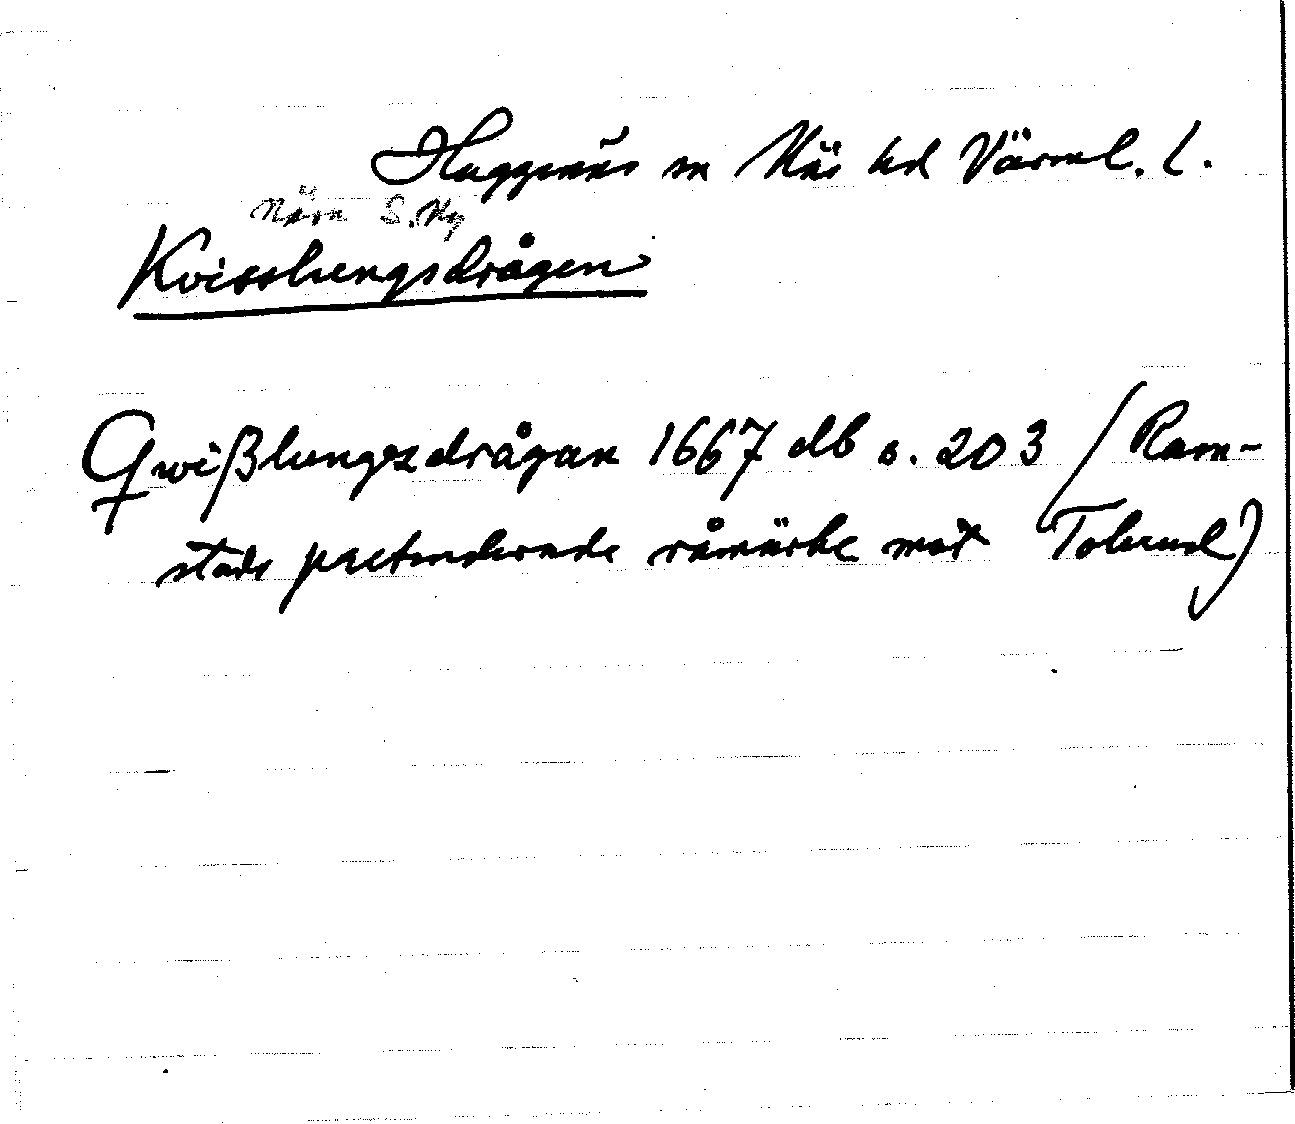 Huggenäs sn Näs hd Värml. l.
Näm S. Ny
Kvisslungsdrågen
Qwißlungzdrågan 1667 db s. 203 (Ram-
stads prætenderade råmärke mot Tolerud)